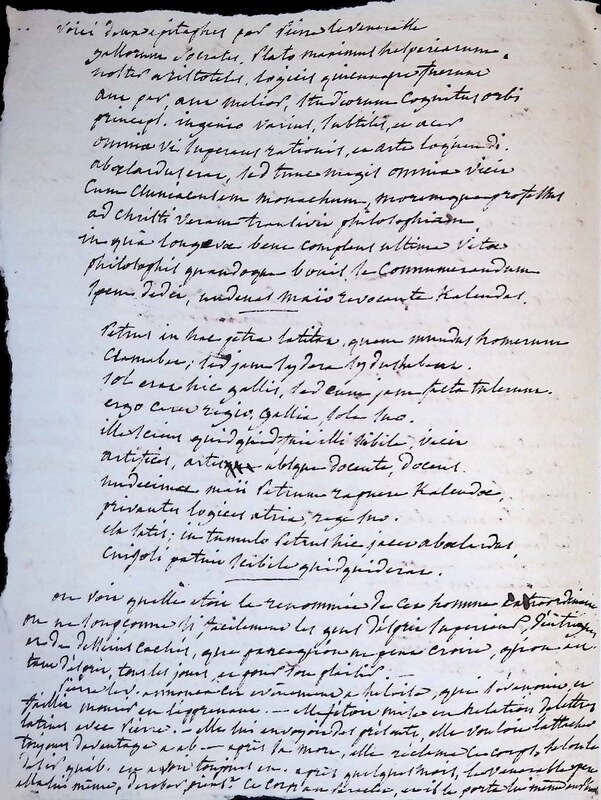 voici deux épitaphes par Pierre le vénérable
gallorum Socrates, Plato maximus hesperiarum,
noster aristoteles, logicis quicumque fuerunt
aut par aut melior, studiorum Cognitus orbi
princeps. ingenio varius, subtilis, et acer
omnia vi superans rationis, et arte loquendi.
abaelardus erat, sed tunc magis omnia vicit
Cum Cluniacensem monachum, moremque professus
ad Christi Veram transivit philosophiam
in quâ longaeva bene complens ultima vitae
philosophis quandoque bonis se Connumerandum
spem dedit, undenas maïo revocante Kalendas.
Petrus in hac petra latitat, quem mundus homerum
Clamabat; sed jam sydera sydus habent.
Sol erat hic gallis, sed eum jam fata tulerunt.
ergo caret regio gallia, sole suo.
ille sciens quidquid fuit ulli scibile, vicit
artifices, artes absque docente, docens.
undecimae maii Petrum rapuere Kalendae,
privantes logices atria, rege suo.
est satis; in tumulo Petrus hic jacet abaelardus
Cui soli patuit scibile quidquid erat.
on voit quelle étoit la renommée de cet homme extraordinaire
on ne soupçonne si facilement les gens d'esprit supérieur, d'intrigues
et de desseins cachés, que parce qu'on ne peut croire, qu'on ait
tant d'esprit, tous les jours, et pour son plaisir. —
Pierre le v. annonça cet événement à heloïse, qui s'évanouit, et
faillit mourir en l'apprenant. — elle étoit mise en relation de lettres
latines avec Pierre. — elle lui envoyoit des présents, elle vouloit l'attacher
toujours davantage à ab — après sa mort, elle réclama le corps, selon le
desir qu'ab. en avoit toujours eu. après quelques mois, le vénérable
lui même, ce corps au et il le porta